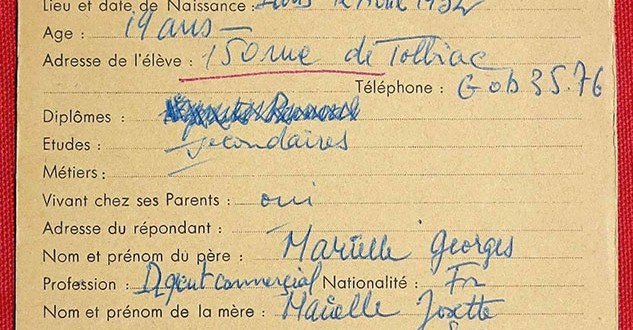 Lieu et date de Naissance : Paris
Age : 19 ans —
Adresse de l'élève : 150 rue de Tolbiac
Téléphone : GOB 35.76
Diplômes :
Etudes : secondaires
Métiers : —
Vivant chez ses Parents : oui
Adresse du répondant :
Nom et prénom du père : Marielle Georges
Profession : Agent commercial Nationalité : Fr
Nom et prénom de la mère : Marielle Josette